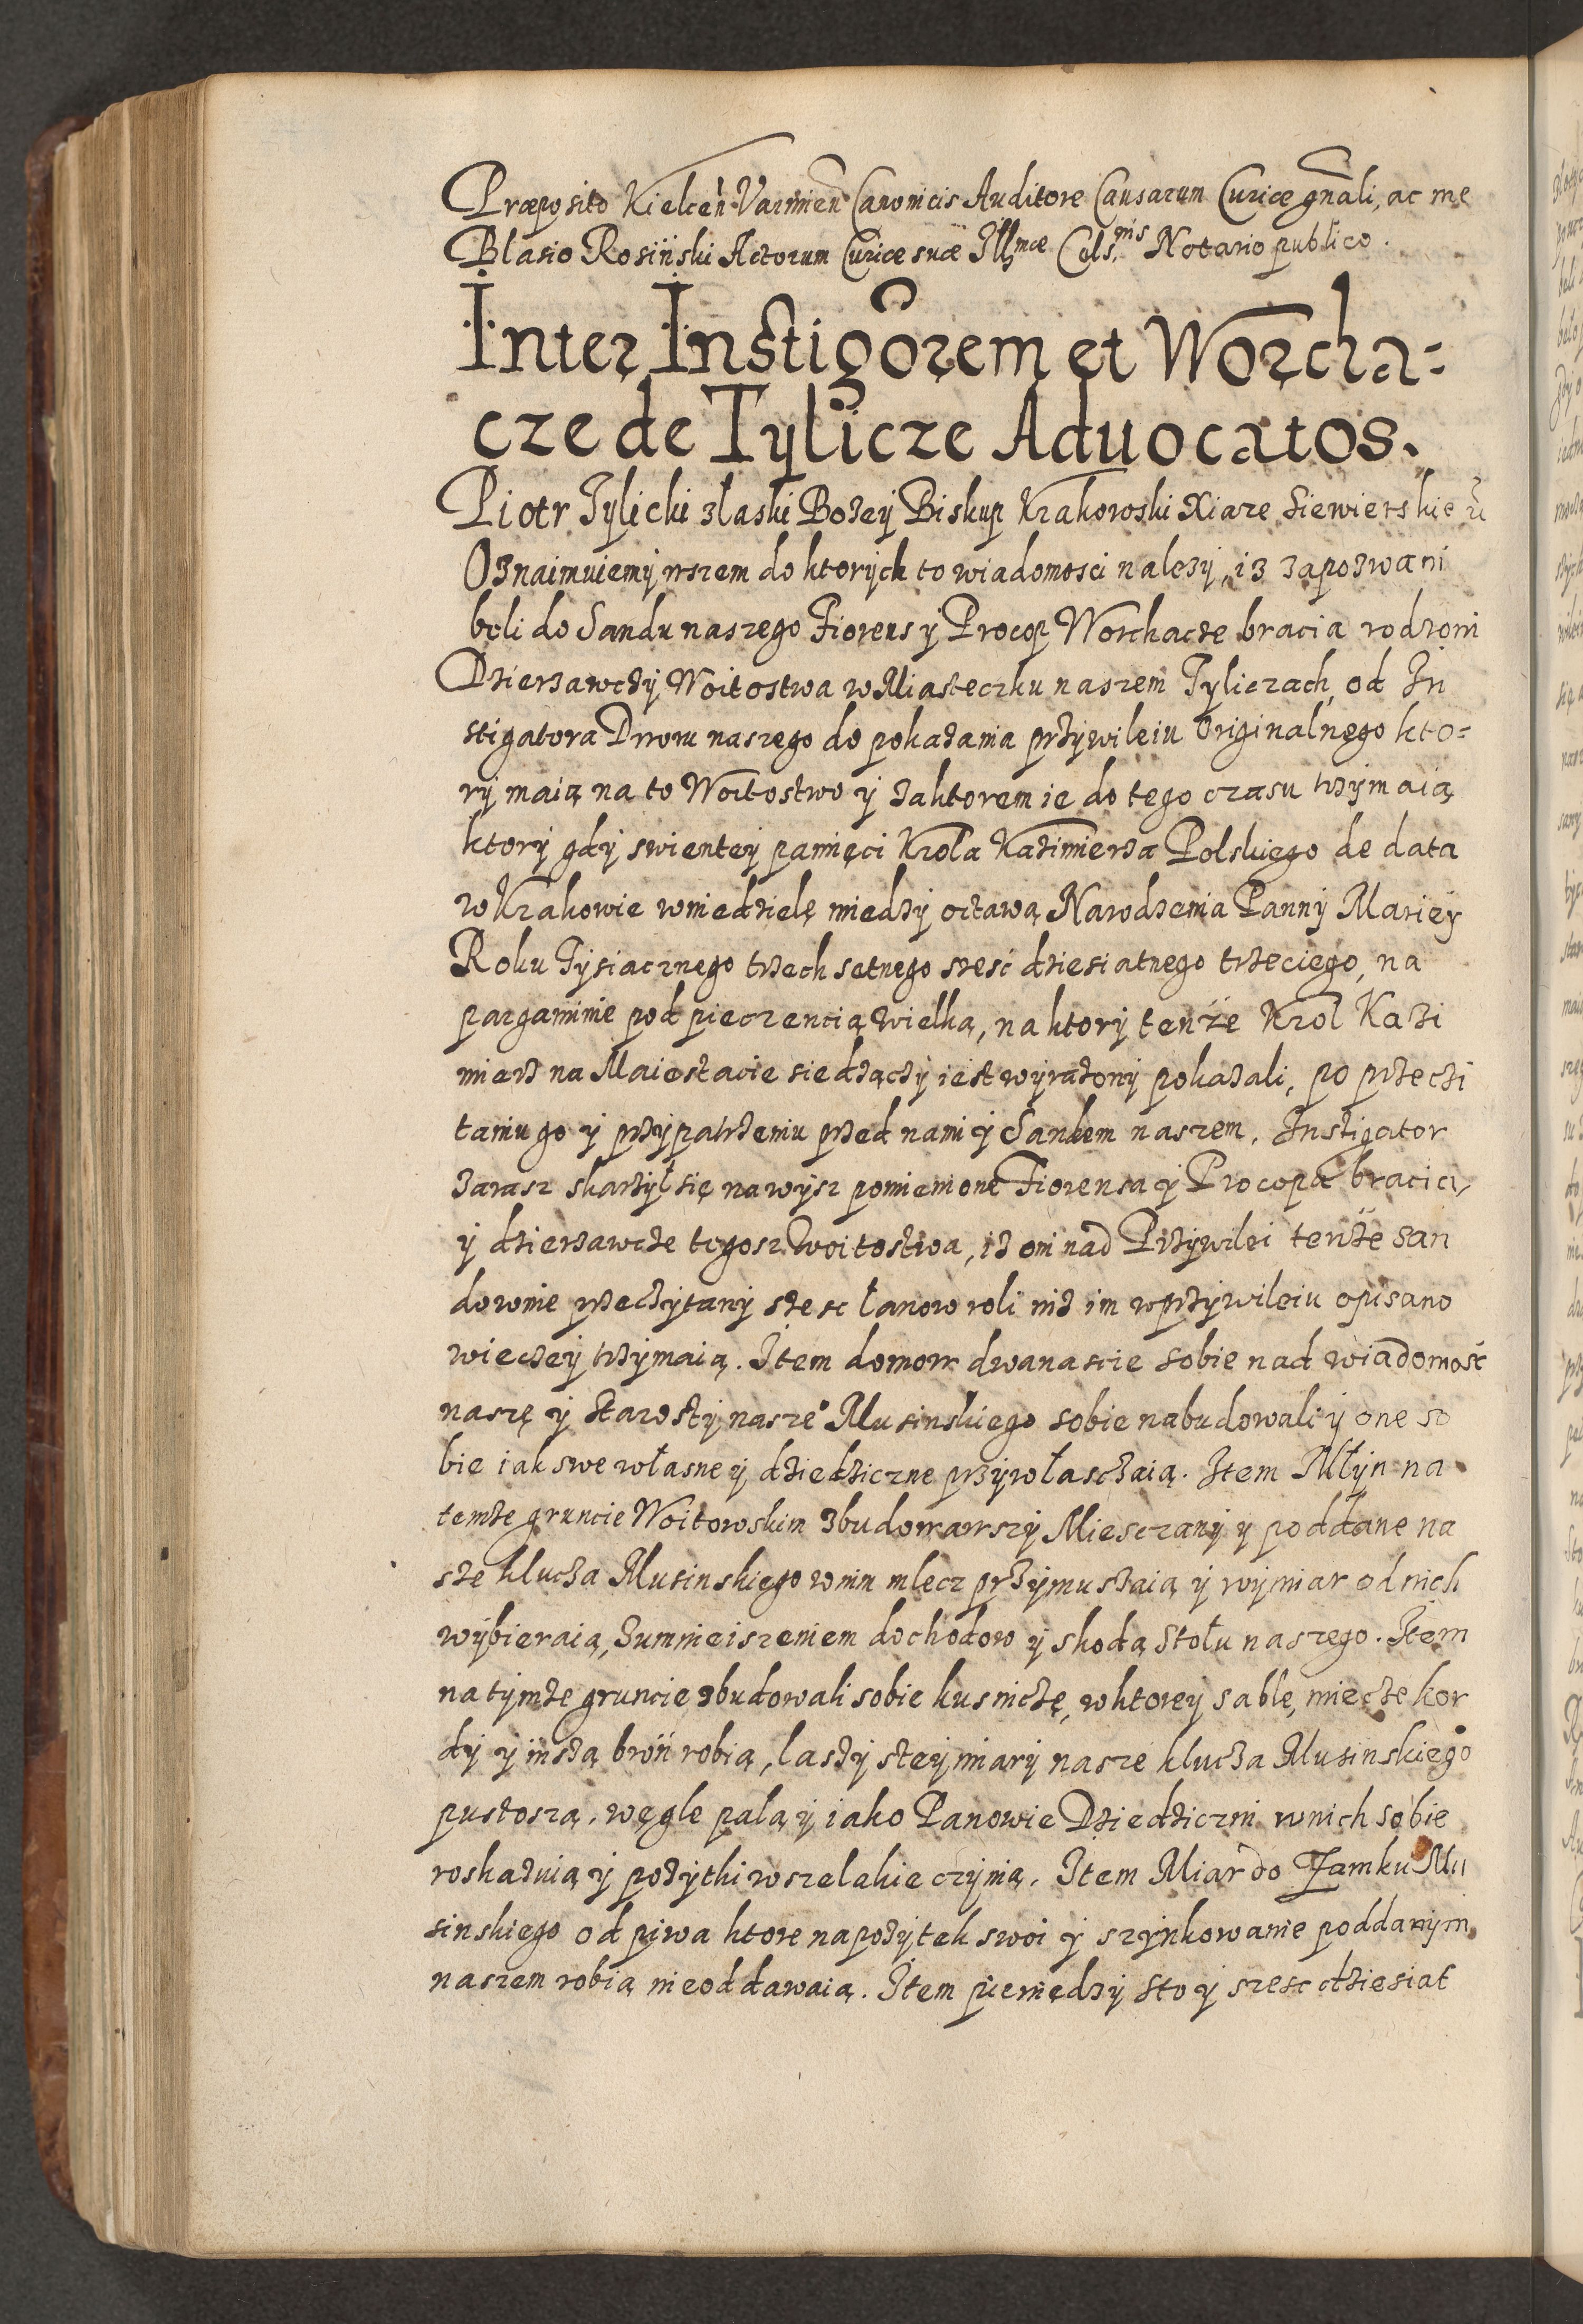 Præposito Kielceñ Varmieñ Canonicis Auditore Causarum Curiæ gñali, ac me
Blasio Rosiński Actorum Curiæ suæ Illmæ Cels.nis Notario publico.
Inter Instigõrem et Worcha-
cze de Tylicze Aduocatos.
Piotr Tylicki złaski Bożey Biskup Krakowski Xiąze Siewierskie ũ
Oznaimuiemy wszem do ktorych to wiadomosci należy, iz zapozwani
beli do Sandu naszego Fiorens y Procop Worchacze bracia rodzoni
Dzierzawczy Woitostwa w Miasteczku naszem Tyliczach, od In
stigatora Dworu naszego do pokazania przywileiu originalnego kto-
ry maią na to Woitostwo y zaktorem ie do tego czasu trzymaią
ktory gdy swientey pamięci Krola Kazimierza Polskiego de data
w Krakowie wniedzielę miedzy octawą Narodzenia Panny Mariey
Roku Tysiacznego trzech setnego szesć dziesiatnego trzeciego, na
pargaminie pod pieczencią wielką, na ktory tenże Krol Kazi
mierz na Maiestacie siedzączy iest wyrażony pokazali, po przeczi
taniu go y przypatrzeniu przed nami y Sandem naszem, Instigator
zarasz skarżył się na wysz pomienione Fiorensa y Procopa bracią,
y dzierzawcze tegosz Woitostwa, iż oni nad Przywilei tenże san
downie przeczytany szesc łanow roli niż im wprzywileiu opisano
wieczey trzymaią. Item domow dwanascie sobie nad wiadomość
naszę y Starosty nasze° Musinskiego sobie nabudowali y one so
bie iak swe własne y dziedziczne przywłasczaią. Item Młyn na
temże gruncie Woitowskim zbudowawszy Miesczany y poddane na
sze klucza Musinskiego wnim mlecz przymuszaią y wymiar od nich
wybieraią, zumnieiszeniem dochodow y skodą Stołu naszego. Item
na tymże gruncie zbudowali sobie kusniczę, wktorey sable, miecze kor
dy y inszą broń robią, lasży steymiary nasze klucza Musinskiego
pustoszą, węgle palą y iako Panowie Dziedziczni wnich sobie
roskazuią y pożytki wszelakie czynią. Item Miar do Zamku Mu
sinskiego od piwa ktore napożytek swoi y szynkowanie poddanym
naszem robią nieoddawaią. Item pieniędzy sto y szesc dziesiat